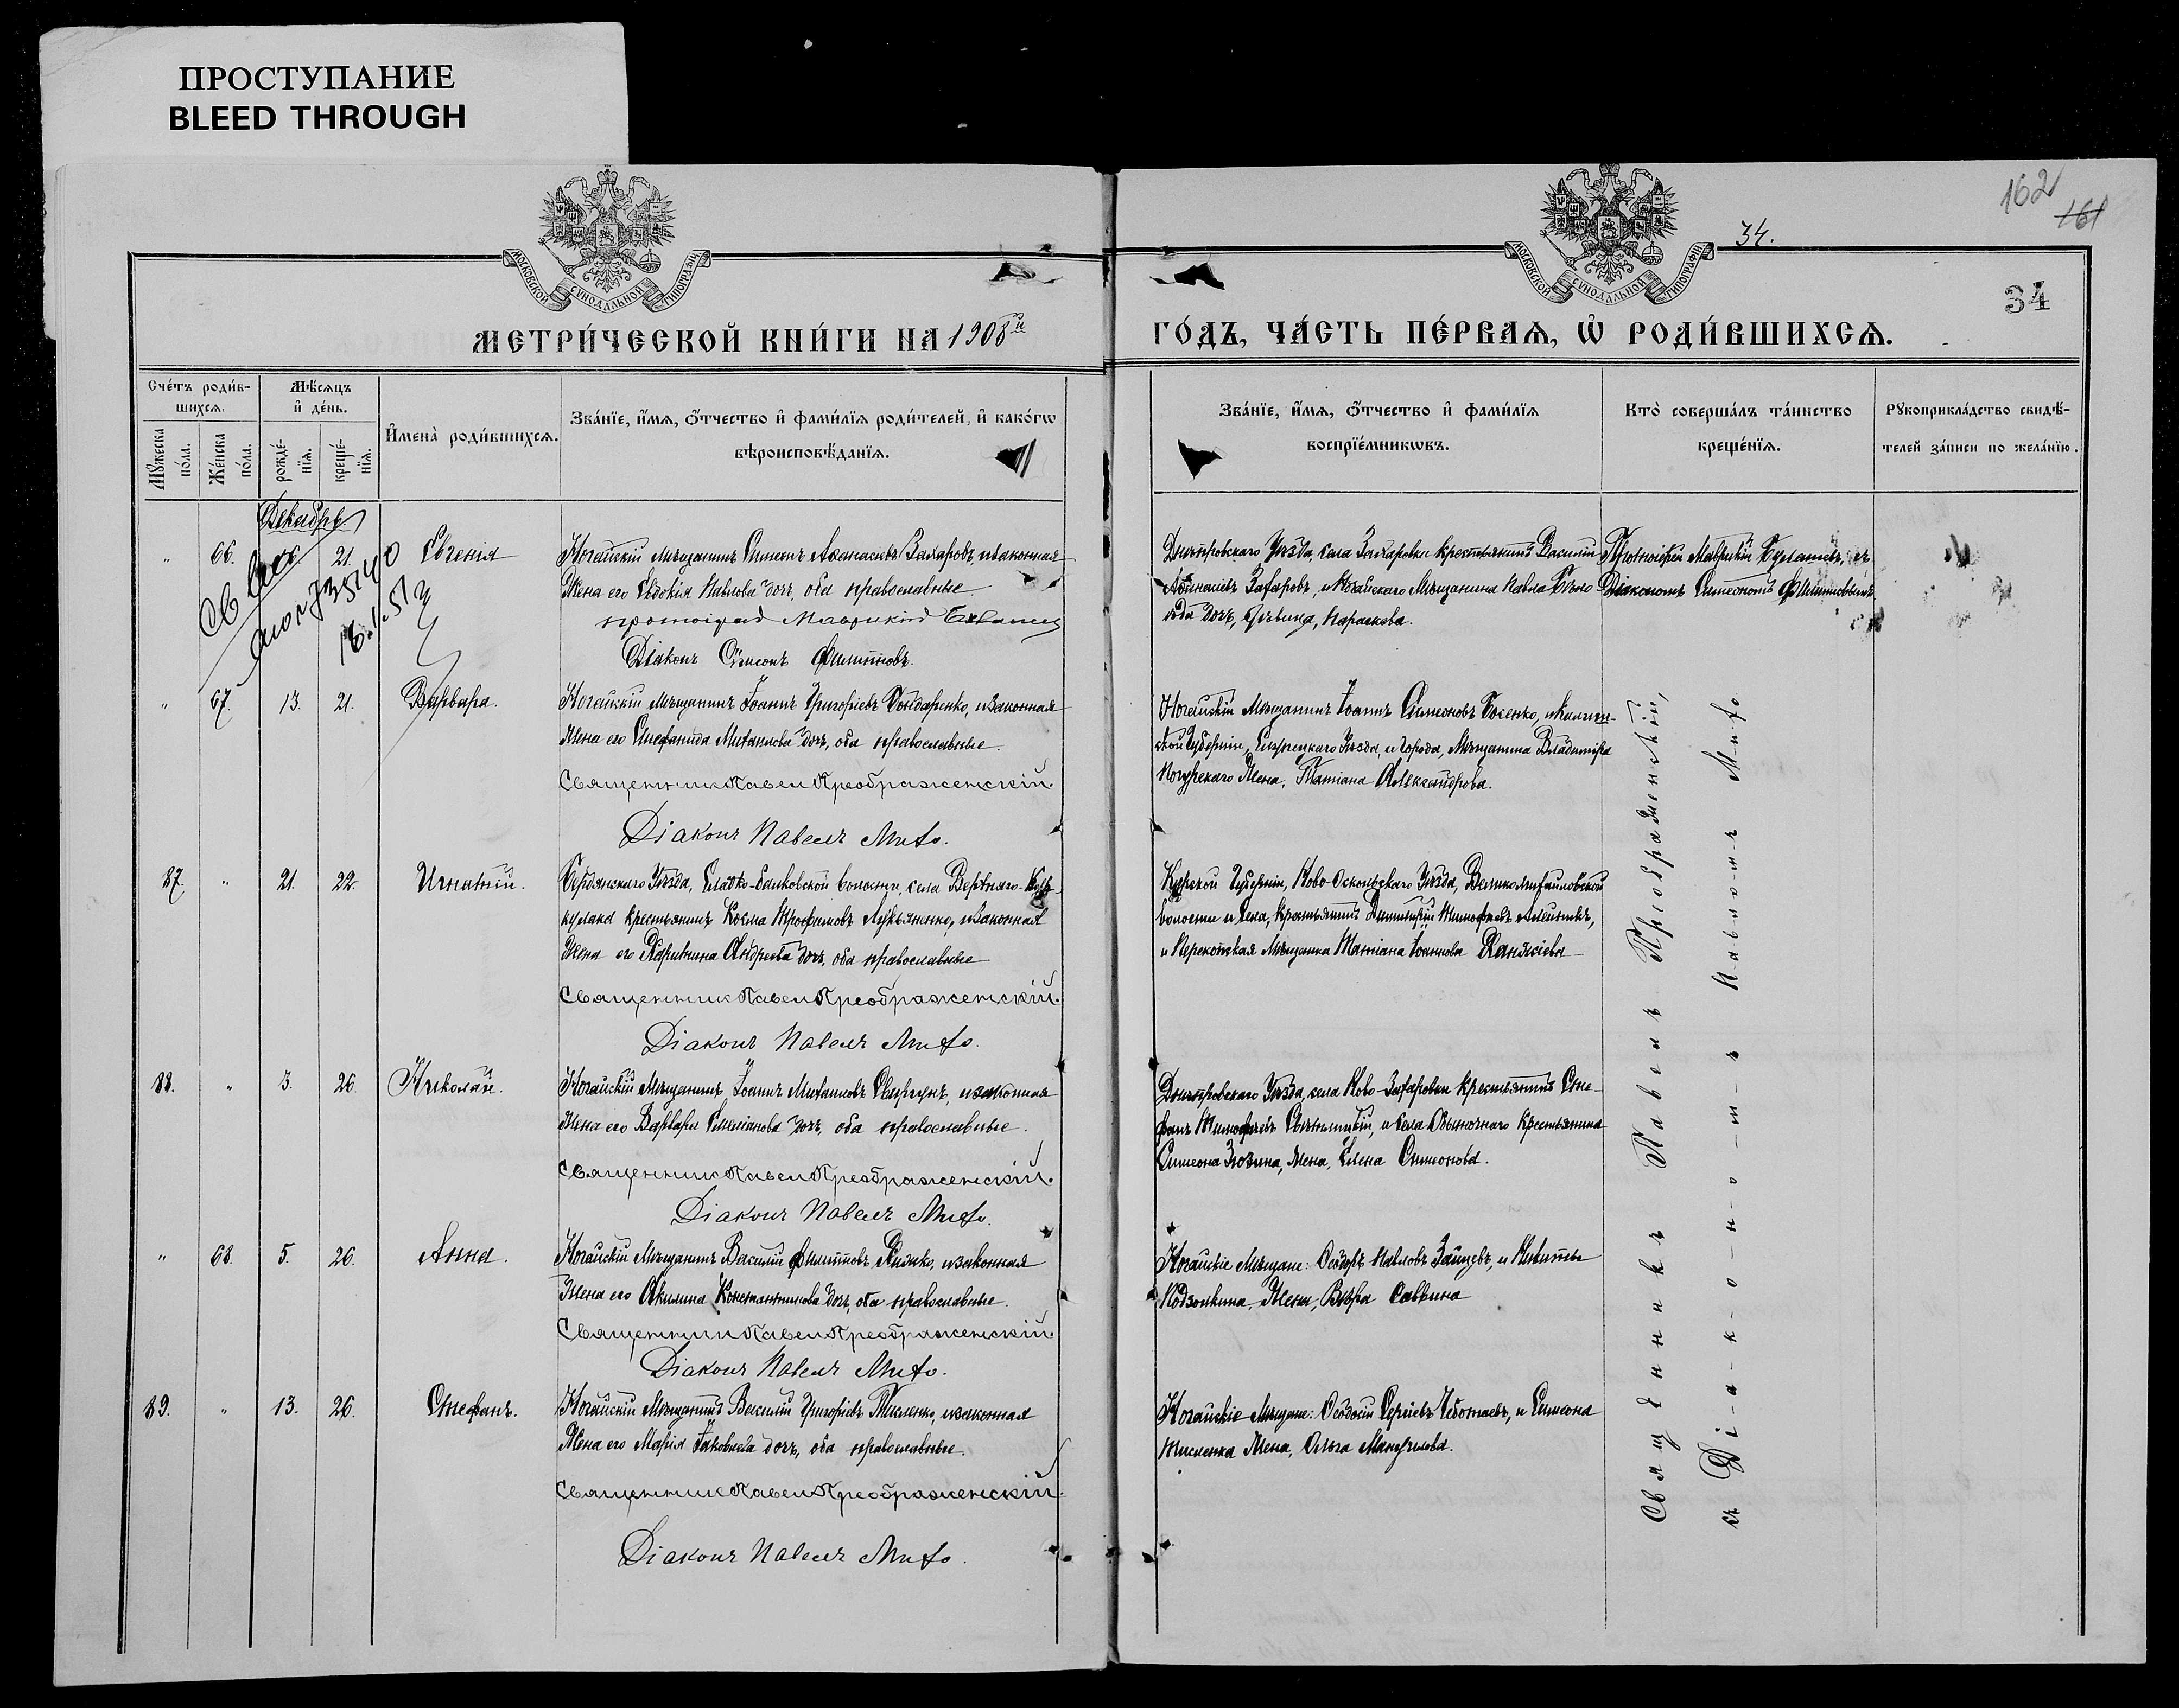 ПРОСТУПАНИЕ
BLEED THROUGH
МОСКОВСКОЙ СѴНОДАЛЬНОЙ ТИПОГРАФІИ
МОСКОВСКОЙ СѴНОДАЛЬНОЙ ТИПОГРАФІИ
34.
162
161
34
МЕТРИ́ЧЕСКОЙ КНИ́ГИ НА 1908й
ГО́ДЪ, ЧА́СТЬ ПЕ́РВАЯ, Ѡ҆ РОДИ́ВШИХСЯ.
Сче́тъ роди́в-
шихся.
Мѣ́сяцъ
и҆ де́нь.
Мꙋ́жеска по́ла.
Же́нска по́ла.
рожде́-нїя.
креще́-нїя.
И҆мена̀ роди́вшихся.
Зва́нїе, и҆́мя, ѻ҆́тчество и҆ фами́лїя роди́телей, и҆ како́гѡ
вѣроисповѣ́данїя.
Зва́нїе, и҆́мя, ѻ҆́тчество и҆ фами́лїя
воспрїе́мникѡвъ.
Кто̀ соверша́лъ та́инство
креще́нїя.
Рꙋкоприкла́дство свидѣ́-
телей за́писи по жела́нїю.
Декабрь
" 66. 21. Евгенія
Ногайскій мѣщанинъ Симеонъ Аѳанасіевъ Захаровъ, и законная
жена его Евдокія Павлова дочь, оба православные
протоіерей Маврикій
Діаконъ Симеонъ Филипповъ.
Днѣпровскаго уѣзда, села Захаровки крестьянинъ Василій
Аѳанасіевъ Захаровъ, и Ногайскаго мѣщанина Павла
дочь, дѣвица, Параскева.
Протоіерей Маврикій съ
Діакономъ Симеономъ Филипповымъ
16.1.51
" 67. 13. 21. Варвара.
Ногайскій мѣщанинъ Іоаннъ Григоріевъ Бондаренко, и законная
жена его Стефанида Михаилова дочь, оба православные.
Священник Павел Преображенскій.
Діаконъ Павелъ Михо.
Ногайскій мѣщанинъ Іоаннъ Симеоновъ
ской Губерніи, уѣзда, и города, мѣщанина Владиміра
жена, Татіана Александрова.
87. " 21. 22. Игнатій.
Бердянскаго уѣзда, волости, села Верхняго Ток-
мака крестьянинъ Косма Трофимовъ Лукьяненко, и законная
жена его Андреева дочь, оба православные
Священник Павел Преображенскій.
Діаконъ Павелъ Михо.
Курской Губерніи, Ново-Оскольскаго уѣзда, Великомихайловской
волости и села, крестьянинъ Димитрій Тимофеевъ Алейникъ,
и Перекопская мѣщанка Татіана Іоаннова
88. " 3. 26. Николай.
Ногайскій мѣщанинъ Іоаннъ Михаиловъ и законная
жена его Варвара Емеліанова дочь, оба православные.
Священник Павел Преображенскій.
Діаконъ Павелъ Михо.
Днѣпровскаго уѣзда, села Ново-Захаровки крестьянинъ Сте-
фанъ Тимофеевъ и села крестьянина
Симеона Зюзина, жена, Елена Симеонова.
" 68. 5. 26. Анна.
Ногайскій мѣщанинъ Василій Филипповъ и законная
жена его Акилина Константинова дочь, оба православные.
Священник Павел Преображенскій.
Діаконъ Павелъ Михо.
Ногайскіе мѣщане: Ѳеодоръ Павловъ Зайцевъ, и Никиты
Подзолкина, жена, Вѣра Саввина
89. " 13. 26. Стефанъ.
Ногайскій мѣщанинъ Василій Григоріевъ Тисленко, и законная
жена его Марія Іаковлева дочь, оба православные.
Священник Павел Преображенскій.
Діаконъ Павелъ Михо.
Ногайскіе мѣщане: Ѳеодосій Сергіевъ Чеботаевъ, и Симеона
Тисленка жена, Ольга
Священникъ Павелъ Преображенскій,
съ Діакономъ Павломъ Михо